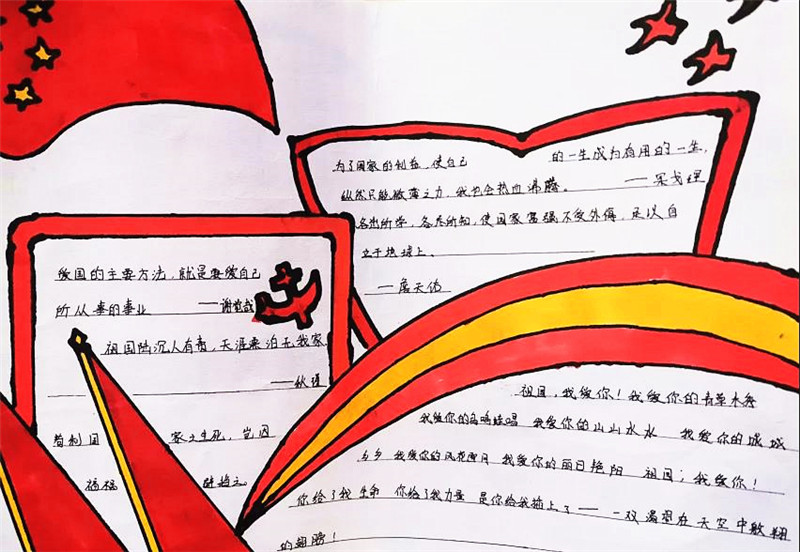 为了国家的利益，使自己 的一生成为有用的一生，
纵然只能微薄之力，我也会热血沸腾。 ——果戈理
各出所学，各尽所知，使国家富强不受外侮，足以自
立于地球上。
——詹天佑
爱国的主要方法，就是要爱自己
所从事的事业 ——谢觉哉
祖国陆沉人有责，天涯飘泊无我家
——秋瑾
苟利国 家之生死，岂因
祸福 避趋之。
祖国，我爱你！我爱你的青草木舟
我爱你的鸟鸣蛙唱 我爱你的山山水水 我爱你的城城
乡乡 我爱你的风花雪月 我爱你的丽日艳阳 祖国；我爱你！
你给了我生命 你给了我力量 是你给我插上了——一双渴望在天空中敞翔
的翅膀！